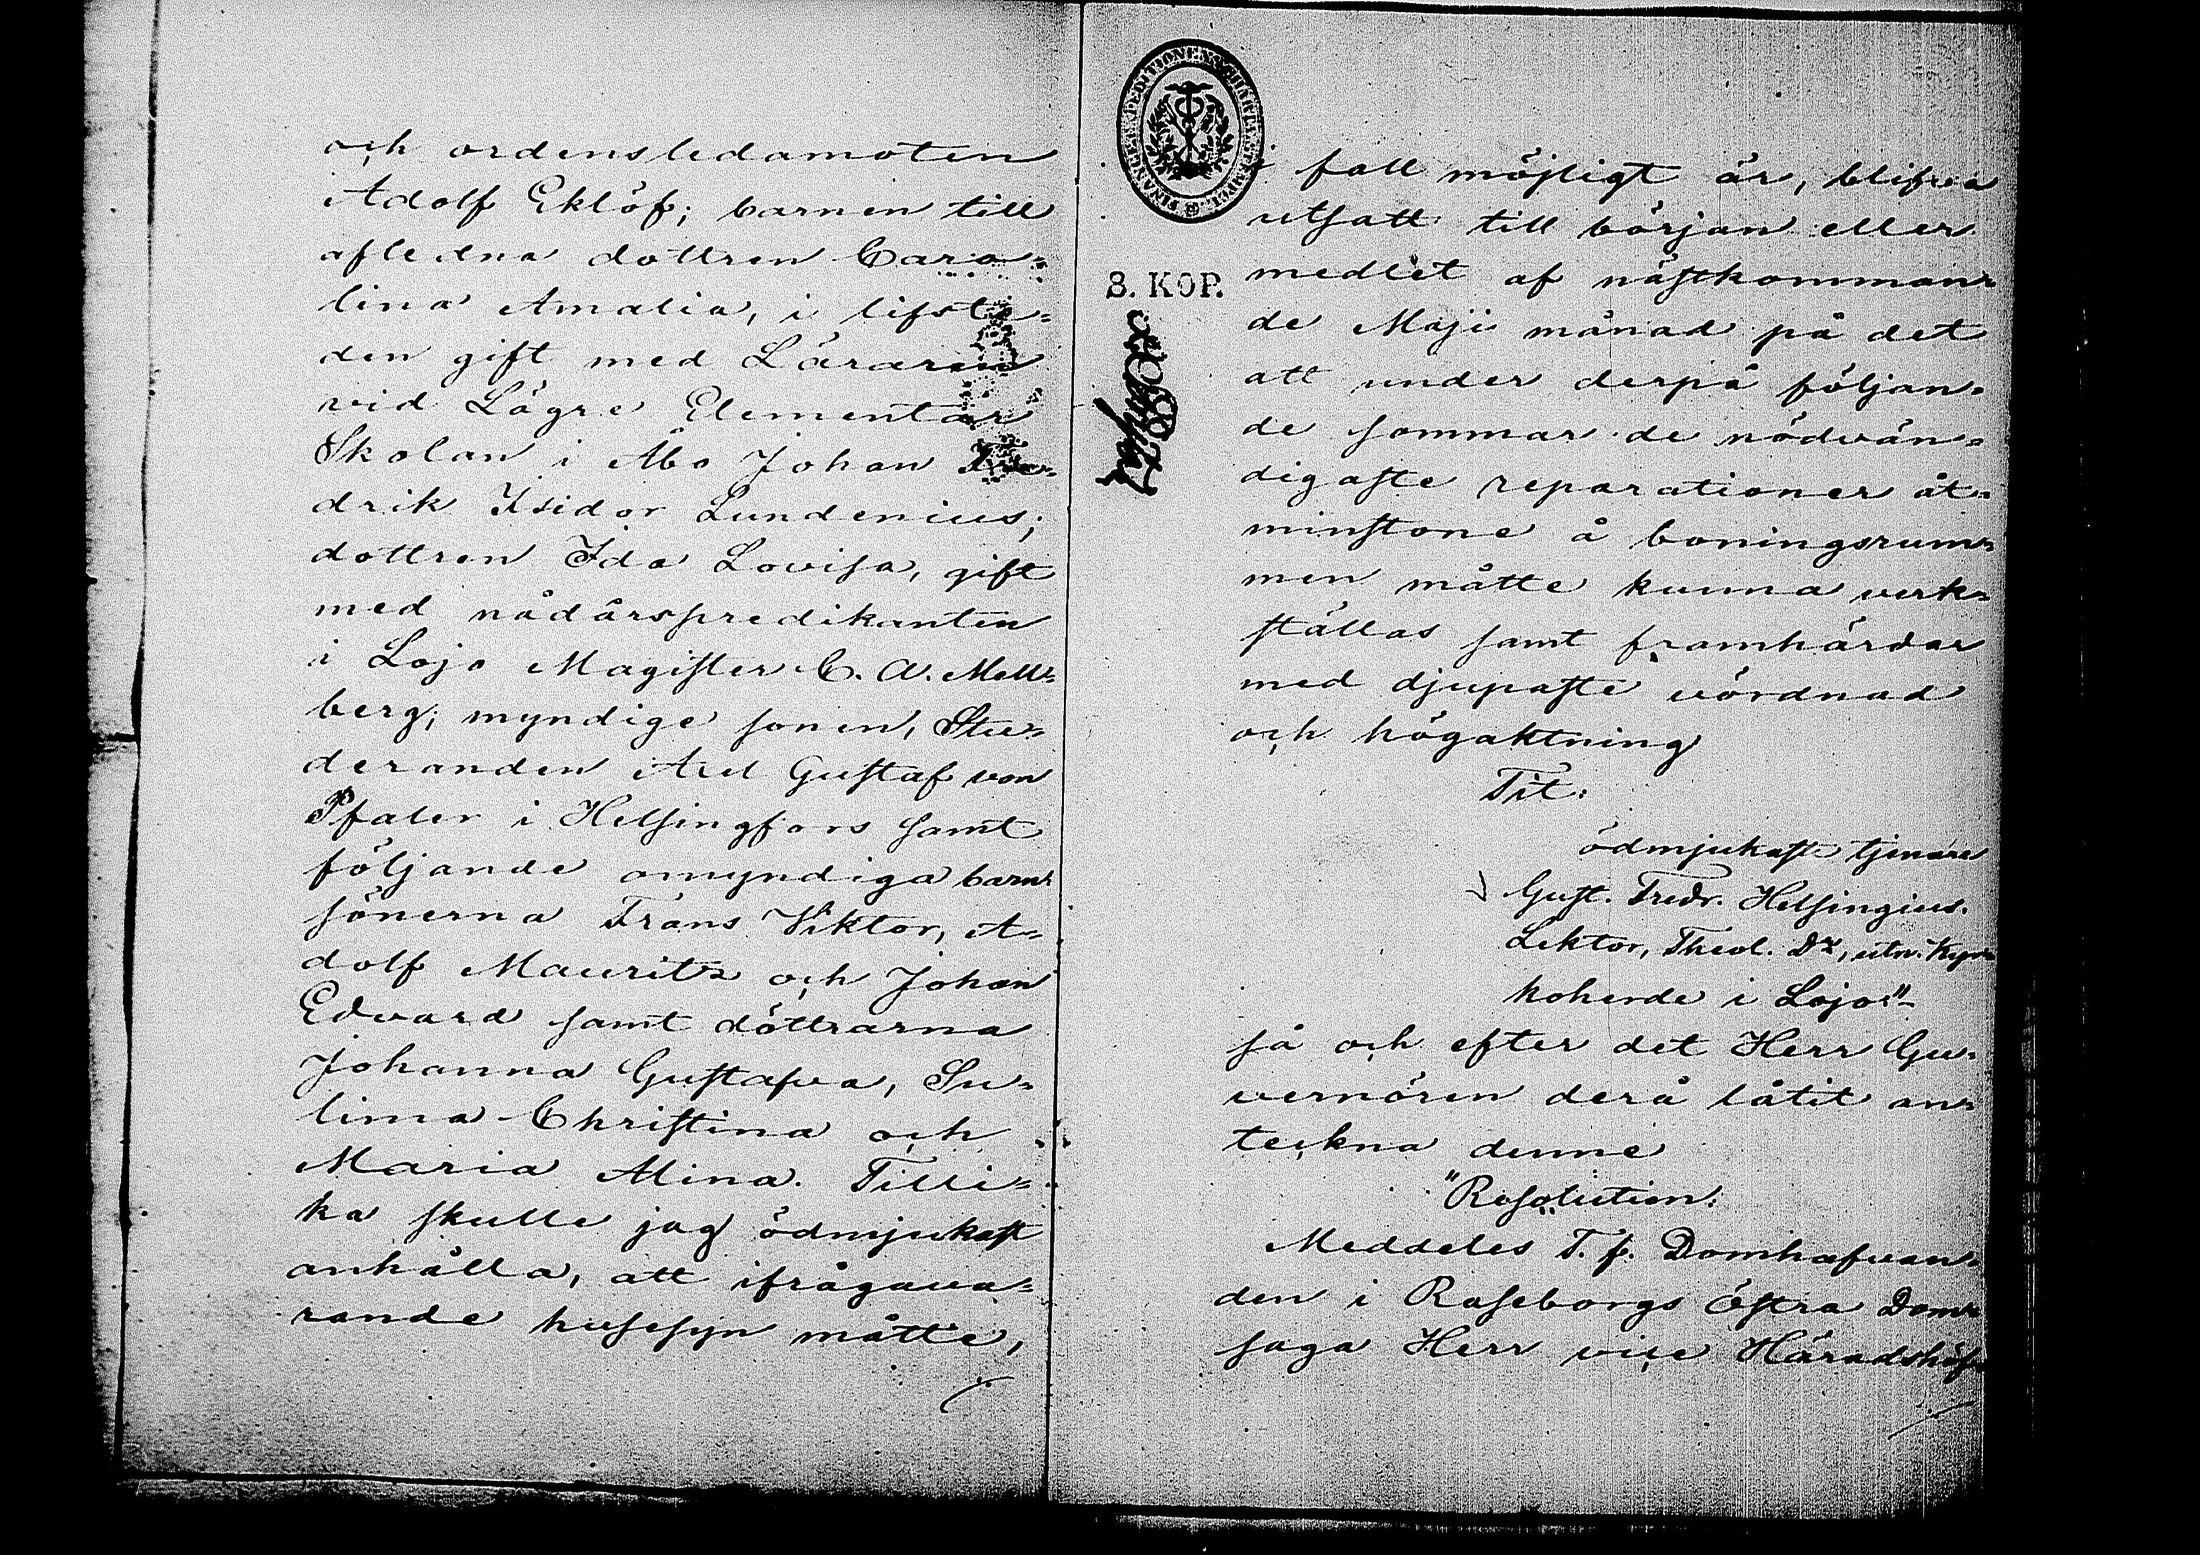 och ordensledamoten
Adolf Eklöf; barnen till
aflidna dottren Caro-
lina Amalia, i lifsti-
den gift med Läraren
vid Lägre Elementar
Skolan i Åbo Johan Fre-
drik Isidor Lundenius;
dottren Ida Lovisa, gift
med nådårspredikanten
i Lojo Magister C. A. Mell-
berg; myndige sonen, Stu-
deranden Axel Gustaf von
Pfaler i Helsingfors samt
följande omyndiga barn:
sönerna Frans Viktor, A-
dolf Mauritz och Johan
Edvard samt döttrarna
Johanna Gustafva, Su-
lima Christina och
Maria Alina. Tilli-
ka skulle jag ödmjukast
anhålla, att ifrågava-
rande husesyn måtte,
FINANCE EXPEDITIONENS CHARTÆ STEMPEL
8. KOP.
i fall möjligt är, blifva
utsatt till början eller
medlet af nästkomman-
de Maji månad på det
att under derpå följan-
de sommar de nödvän-
digaste reparationer åt-
minstone å boningsrum-
men måtte kunna verk-
ställas samt framhärdar
med djupaste vördnad
och högaktning
Tit:
ödmjukaste tjenare
Gust. Fredr. Helsingius.
Lektor, Theol. Dr, utn. Kyr-
koherde i Lojo"
så och efter det Herr Gu-
vernören derå låtit an-
teckna denne
"Resolution:
Meddeles T. f. Domhafvan-
den i Raseborgs Östra Dom-
saga Herr vice Häradshöf-